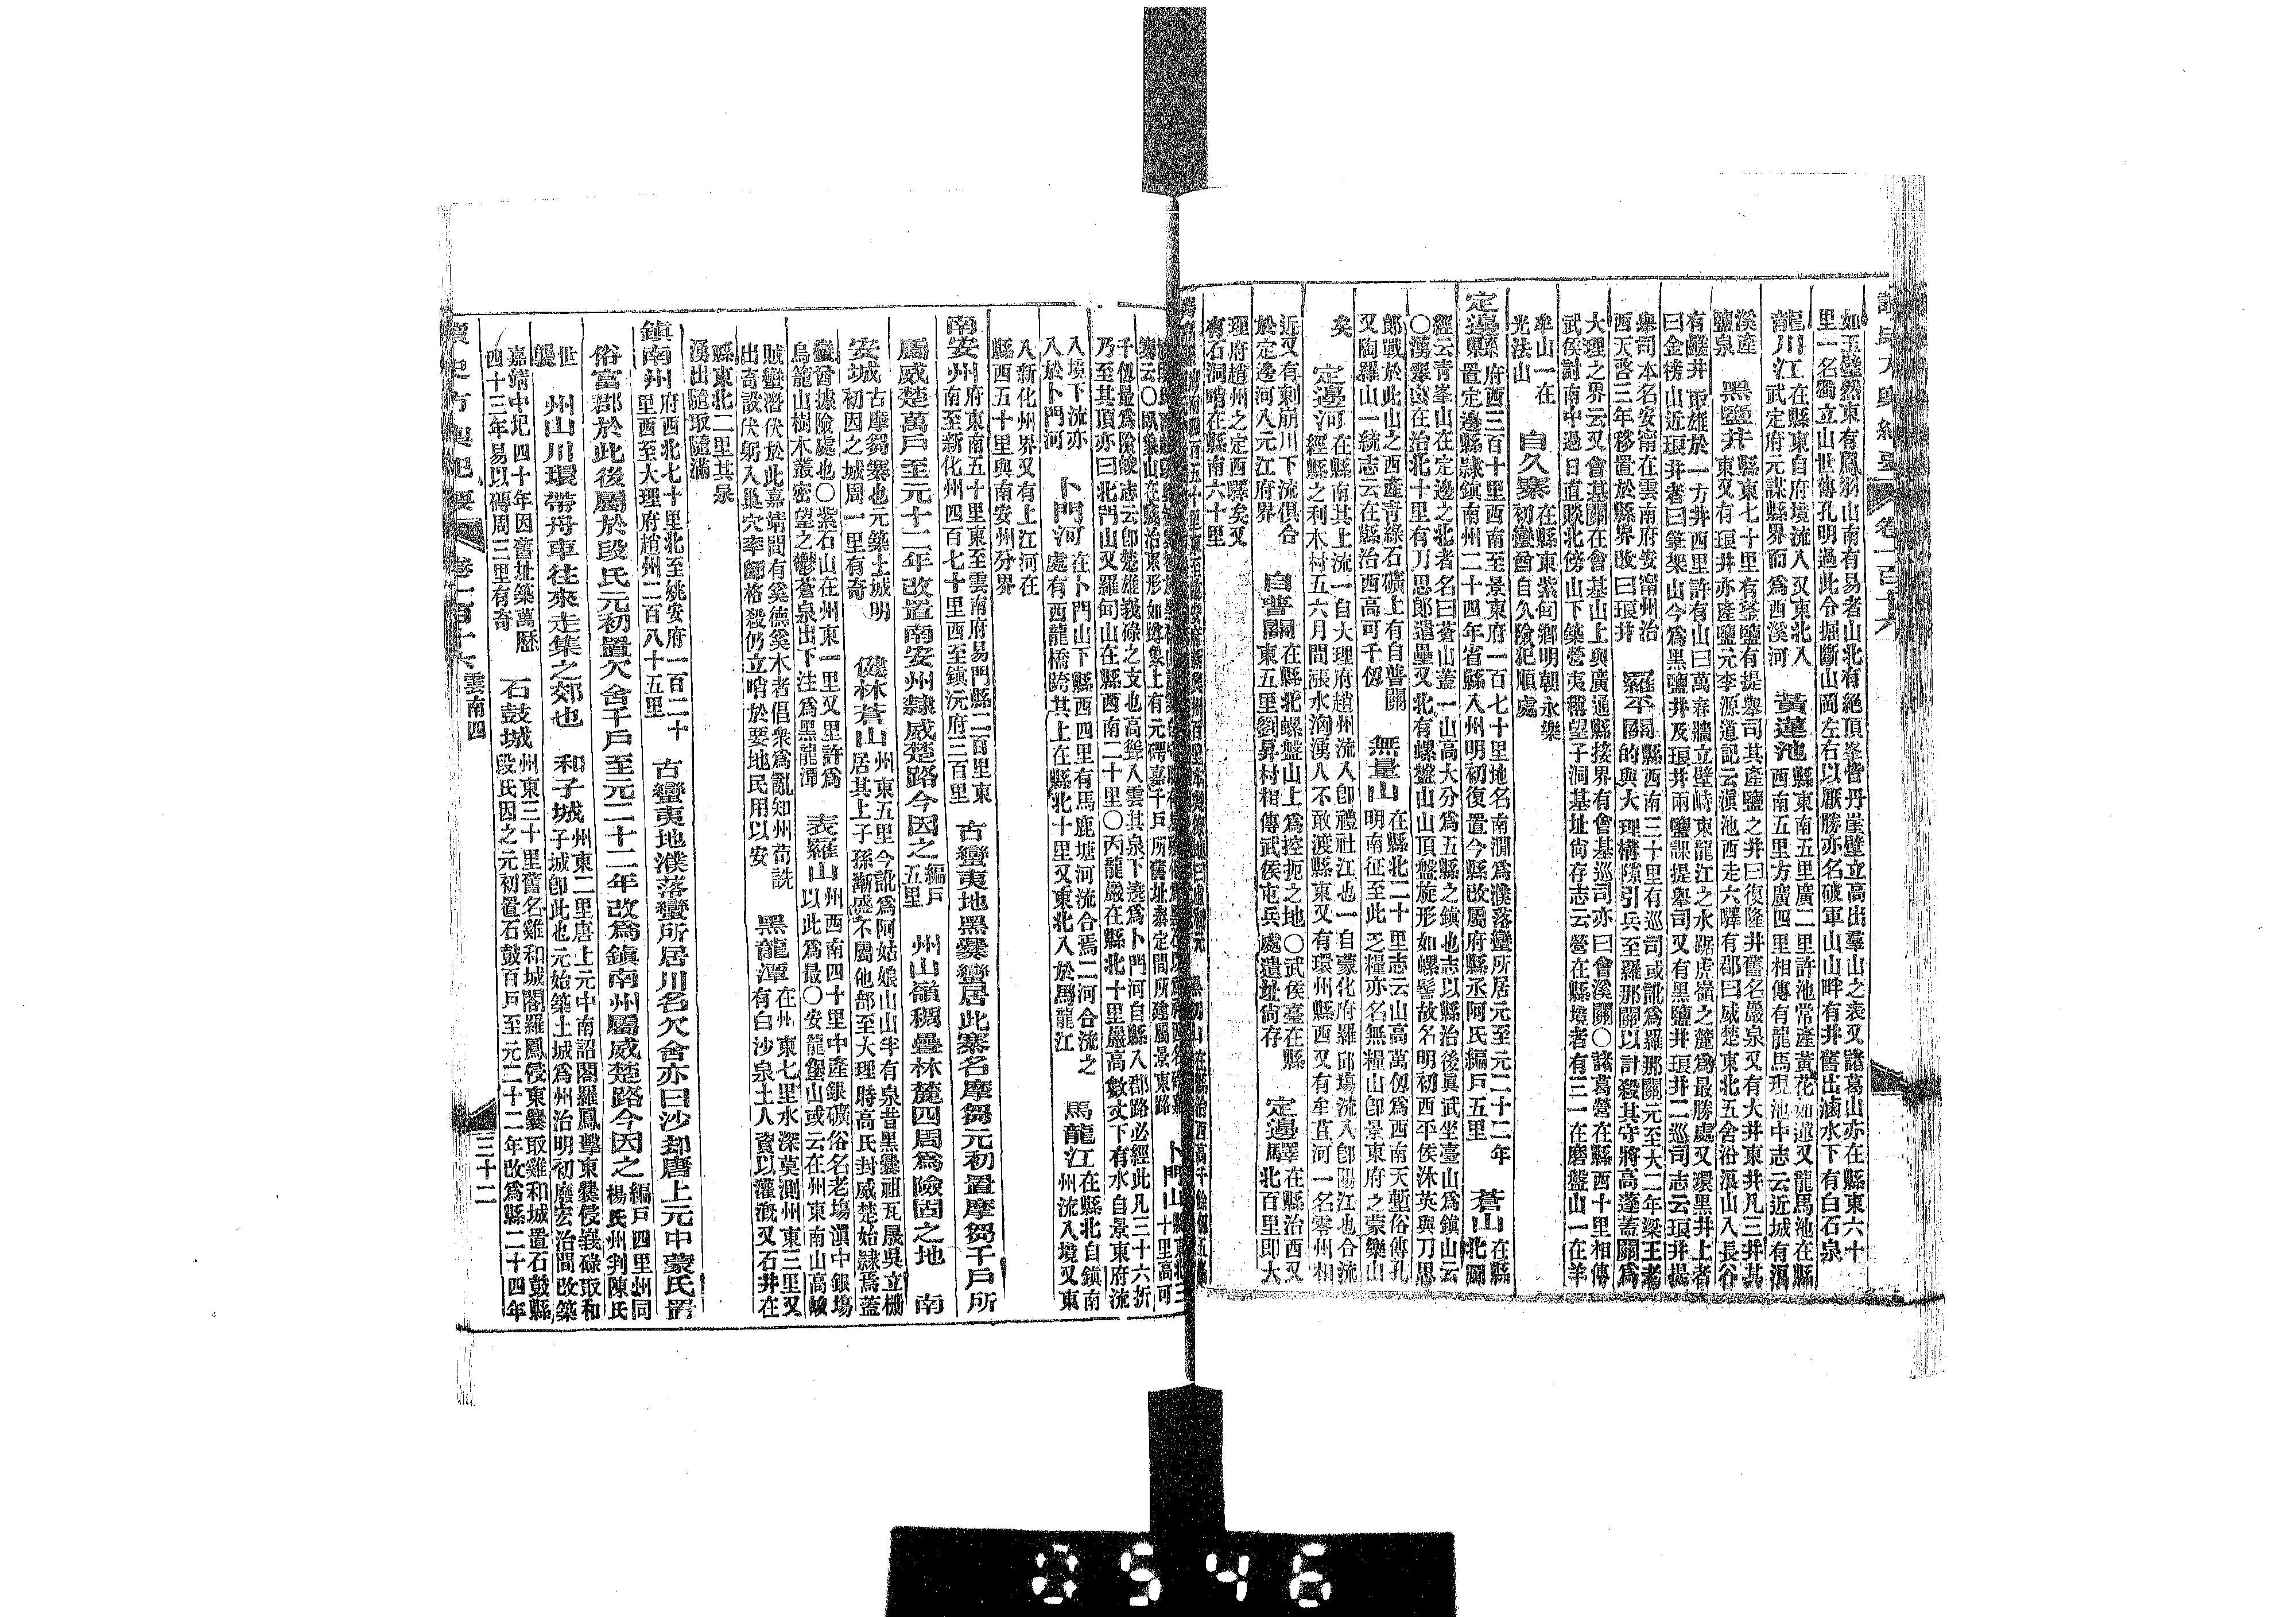 讀史方輿紀要 卷一百十六
如玉璧然東有鳳羽山南有易者山北有絕頂峯皆丹崖壁立高出羣山之表又諸葛山亦在縣東六十
里一名獨立山世傳孔明過此令掘斷山岡左右以厭勝亦名破軍山山畔有井舊出滷水下有白石泉
龍川江 在縣東自府境流入又東北入
武定府元謀縣界而爲西溪河
黃蓮池 縣東南五里廣二里許池常產黃花如蓮又龍馬池在縣
西南五里方廣四里相傳有龍馬現池中志云近城有濕
溪產
鹽泉
黑鹽井 縣東七十里有釜鹽有提舉司其產鹽之井曰復隆井舊名巖泉又有大井東井凡三井其
東又有琅井亦產鹽元李源道記云滇池西走六驛有郡曰威楚東北五舍沿浪山入長谷
有鹺井取雄於一方井西里許有山曰萬春牆立壁峙東龍江之水踞虎嶺之麓爲最勝處又環黑井上者
曰金榜山近琅井者曰筆架山今爲黑鹽井及琅井兩鹽課提舉司又有黑鹽井琅井二巡司志云琅井提
舉司本名安甯在雲南府安甯州治
西天啓三年移置於縣界改曰琅井
羅平關 縣西南三十里有巡司或訛爲羅那關元至大二年梁王老
的與大理構隙引兵至羅那關以計殺其守將高蓬蓋關爲
大理之界云又會基關在會基山上與廣通縣接界有會基巡司亦曰會溪關○諸葛營在縣西十里相傳
武侯討南中過日直賧北傍山下築營夷稱望子洞基址尚存志云營在縣境者有三一在磨盤山一在羊
牟山一在
光法山
自久寨 在縣東紫甸鄉明朝永樂
初蠻酋自久險犯順處
定邊縣 府西三百十里西南至景東府一百七十里地名南澗爲濮落蠻所居元至元二十二年
置定邊縣隸鎮南州二十四年省縣入州明初復置今縣改屬府縣丞阿氏編戶五里
蒼山 在縣
北圖
經云靑峯山在定邊之北者名曰蒼山蓋一山高大分爲五縣之鎮也志以縣治後眞武坐臺山爲鎮山云
○湧翠山在治北十里有刀思郞遺壘又北有螺盤山山頂盤旋形如螺髻故名明初西平侯沐英與刀思
郞戰於此山之西產靑綠石礦上有自普關
又陶羅山一統志云在縣治西高可千仭
無量山 在縣北二十里志云山高萬仭爲西南天塹俗傳孔
明南征至此乏糧亦名無糧山卽景東府之蒙樂山
矣
定邊河 在縣南其上流一自大理府趙州流入卽禮社江也一自蒙化府羅邱塲流入卽陽江也合流
經縣之利木村五六月間漲水洶湧人不敢渡縣東又有環州縣西又有牟苴河一名零州相
近又有剌崩川下流俱合
於定邊河入元江府界
自普關 在縣北螺盤山上爲控扼之地○武侯臺在縣
東五里劉昇村相傳武侯屯兵處遺址尚存
定邊驛 在縣治西又
北百里卽大
理府趙州之定西驛矣又
有石洞哨在縣南六十里
卜門山
十里高可
千仭最爲險峻志云卽楚雄峩㟳之支也高聳入雲其泉下遶爲卜門河自縣入郡路必經此凡三十六折
乃至其頂亦曰北門山又羅甸山在縣西南二十里○丙龍巖在縣北十里巖高數丈下有水自景東府流
入境下流亦
入於卜門河
卜門河 在卜門山下縣西四里有馬鹿塘河流合焉二河合流之
處有西龍橋跨其上在縣北十里又東北入於馬龍江
馬龍江 在縣北自鎮南
州流入境又東
入新化州界又有上江河在
縣西五十里與南安州分界
南安州 府東南五十里東至雲南府易門縣二百里東
南至新化州四百七十里西至鎮沅府三百里
古蠻夷地黑爨蠻居此寨名摩芻元初置摩芻千戶所
屬威楚萬戶至元十二年改置南安州隸威楚路今因之 編戶
五里
州山嶺稠疊林麓四周爲險固之地 南
安城 古摩芻寨也元築土城明
初因之城周一里有奇
健林蒼山 州東五里今訛爲阿姑娘山山半有泉昔黑爨祖瓦晟吳立柵
居其上子孫漸盛不屬他部至大理時高氏封威楚始隸焉蓋
蠻酋據險處也○紫石山在州東一里又里許爲
烏籠山樹木叢密望之鬱蒼泉出下注爲黑龍潭
表羅山 州西南四十里中產銀礦俗名老塲滇中銀塲
以此爲最○安龍堡山或云在州東南山高峻
賊蠻潛伏於此嘉靖間有奚德奚木者倡衆爲亂知州苟詵
出奇設伏躬入巢穴率師格殺仍立哨於要地民用以安
黑龍潭 在州東七里水深莫測州東三里又
有白沙泉土人資以灌漑又石井在
縣東北二里其泉
湧出隨取隨滿
鎮南州 府西北七十里北至姚安府一百二十
里西至大理府趙州二百八十五里
古蠻夷地濮落蠻所居川名欠舍亦曰沙却唐上元中蒙氏置
俗富郡於此後屬於段氏元初置欠舍千戶至元二十二年改爲鎮南州屬威楚路今因之 編戶四里州同
楊氏州判陳氏
世
襲
州山川環帶舟車往來走集之郊也
和子城 州東二里唐上元中南詔閣羅鳳擊東爨侵峩㟳取和
子城卽此也元始築土城爲州治明初廢宏治間改築
嘉靖中圮四十年因舊址築萬歷
四十三年易以磚周三里有奇
石鼓城 州東三十里舊名雞和城閣羅鳳侵東爨取雞和城置石鼓縣
段氏因之元初置石鼓百戶至元二十二年改爲縣二十四年
讀史方輿紀要 卷一百十六 雲南四 三十二
0546